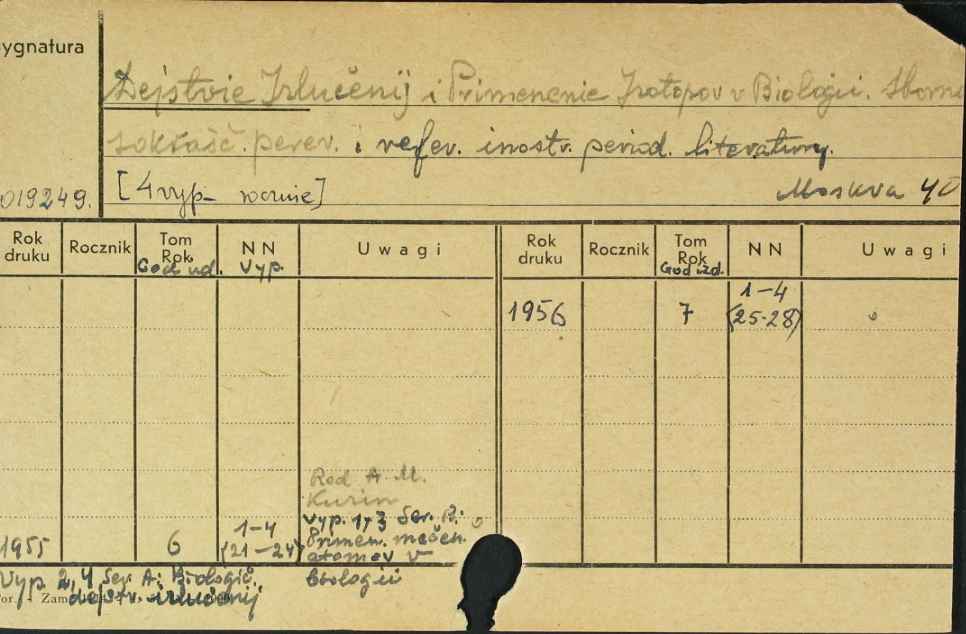 Sygnatura
Dejstvie Izlučenij i Primenenie Izotopov v Biologii. Sborni
sokrašč. perev. i refer. inostr. period. literatury.
019249. [4 vyp rocznie] Moskva 40
Rok druku Rocznik Tom Rok God izd. NN Vyp. Uwagi Rok druku Rocznik Tom Rok God izd. NN Uwagi
1956 7 1-4 (25-28)
Red A. M.
Kuzin
Vyp. 1, 3 Ser. B:
1955 6 1-4 (21-24) Primen. mečen.
atomov v
biologii
Vyp 2, 4 Ser. A: Biologič.
dejstv. izlučenij
Zam